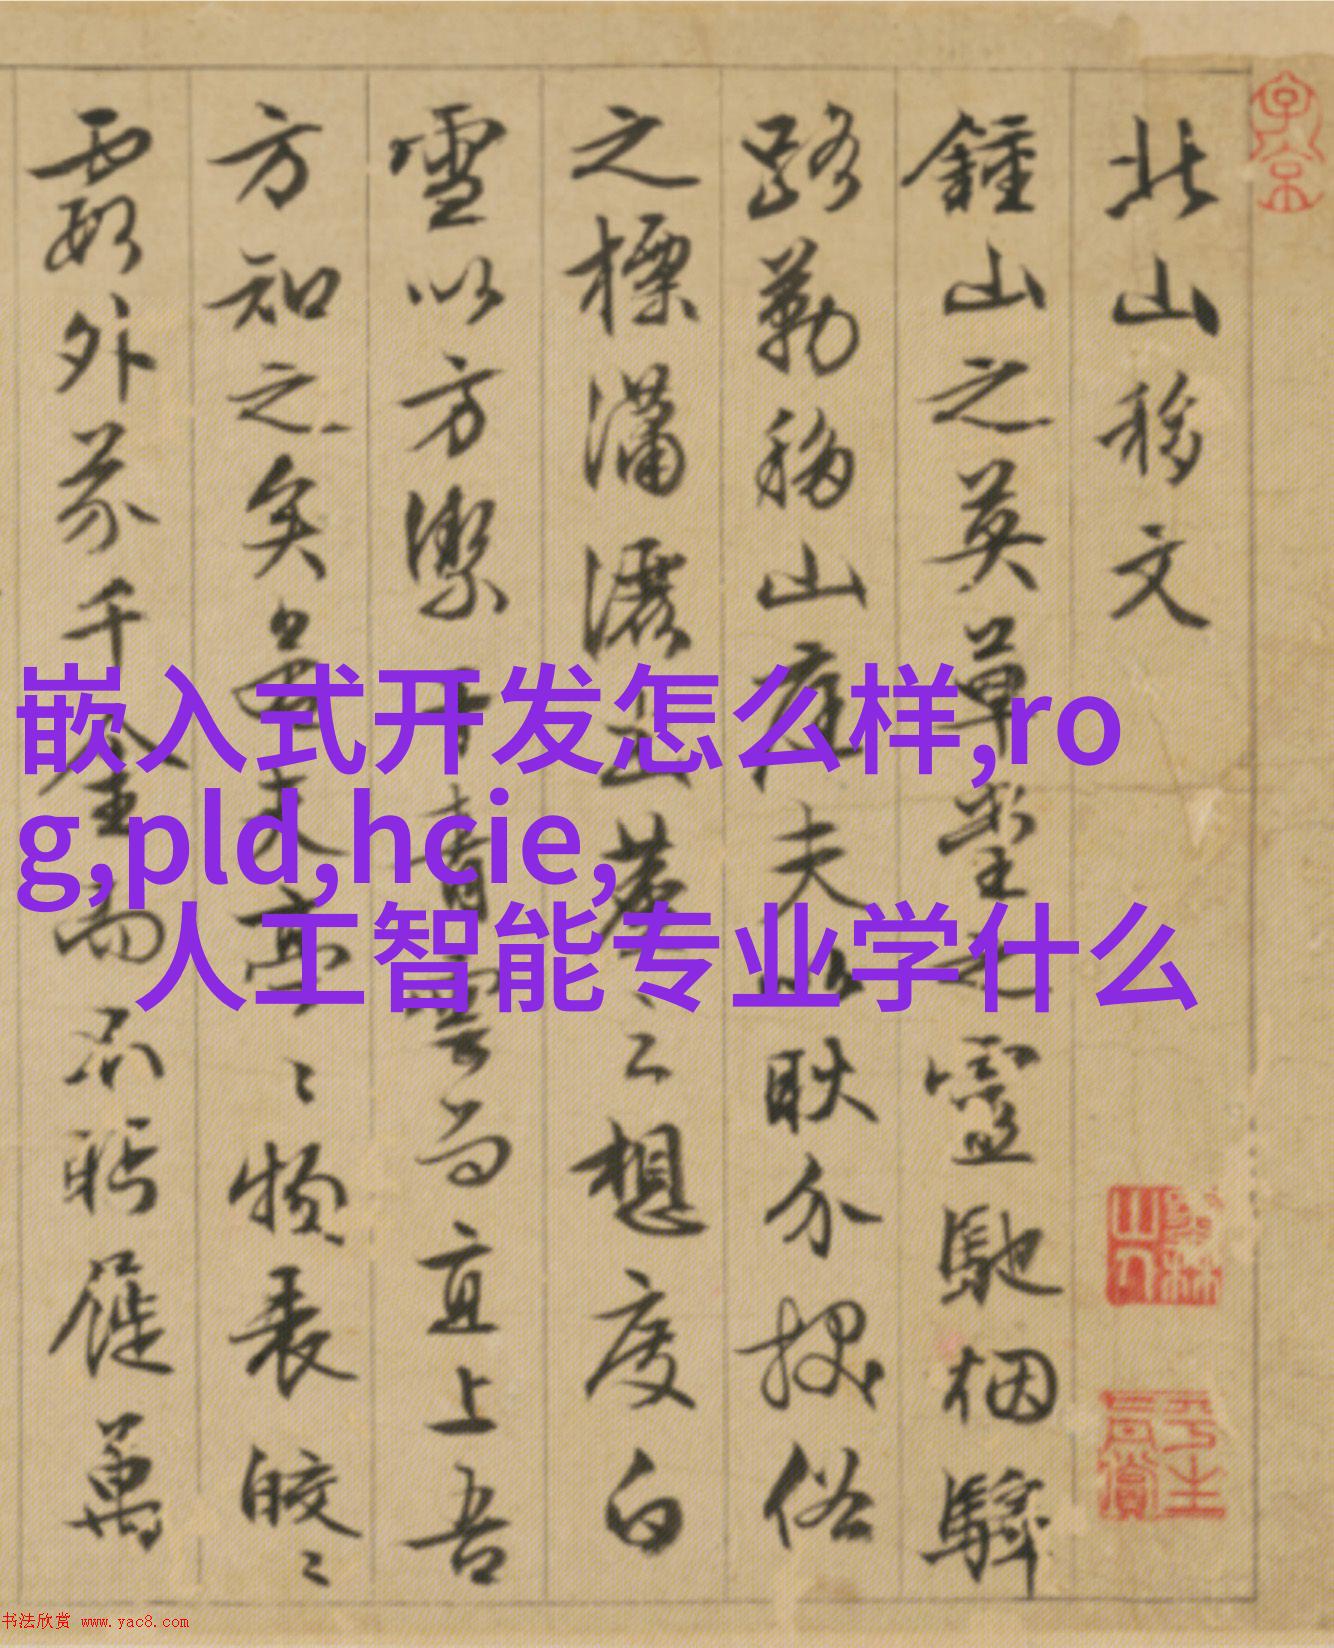 北山移文
鍾山之英草堂之靈馳烟驛
路勒移山庭夫以耿介拔俗
之標瀟灑出塵之想度白
雪以方潔干青雲而直上吾
方知之矣夫亭〻物表皎〻
霞外芥千金而不眄屣萬
嵌入式开发怎么样,ro
g,pld,hcie,
人工智能专业学什么
平生真賞
书法欣赏 www.yac8.com